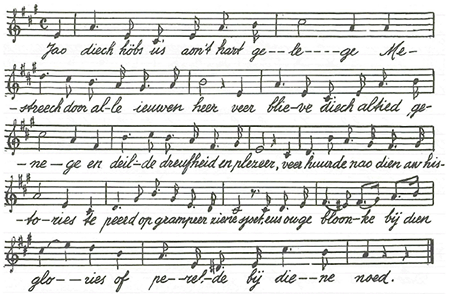 Jao diech höbs us aon't hart ge-le----ge Me-
-streech door al-le ieuwen heer veer blie-ve diech altied ge-
-ne--ge en deil-de dreufheid en plezeer, veer huurde nao dien aw his-
-to-ries te peerd op grampeer ziene sjoet, eus ouge bloon-ke bij dien
glo---ries of pe--rel-de bij die--ne noed.